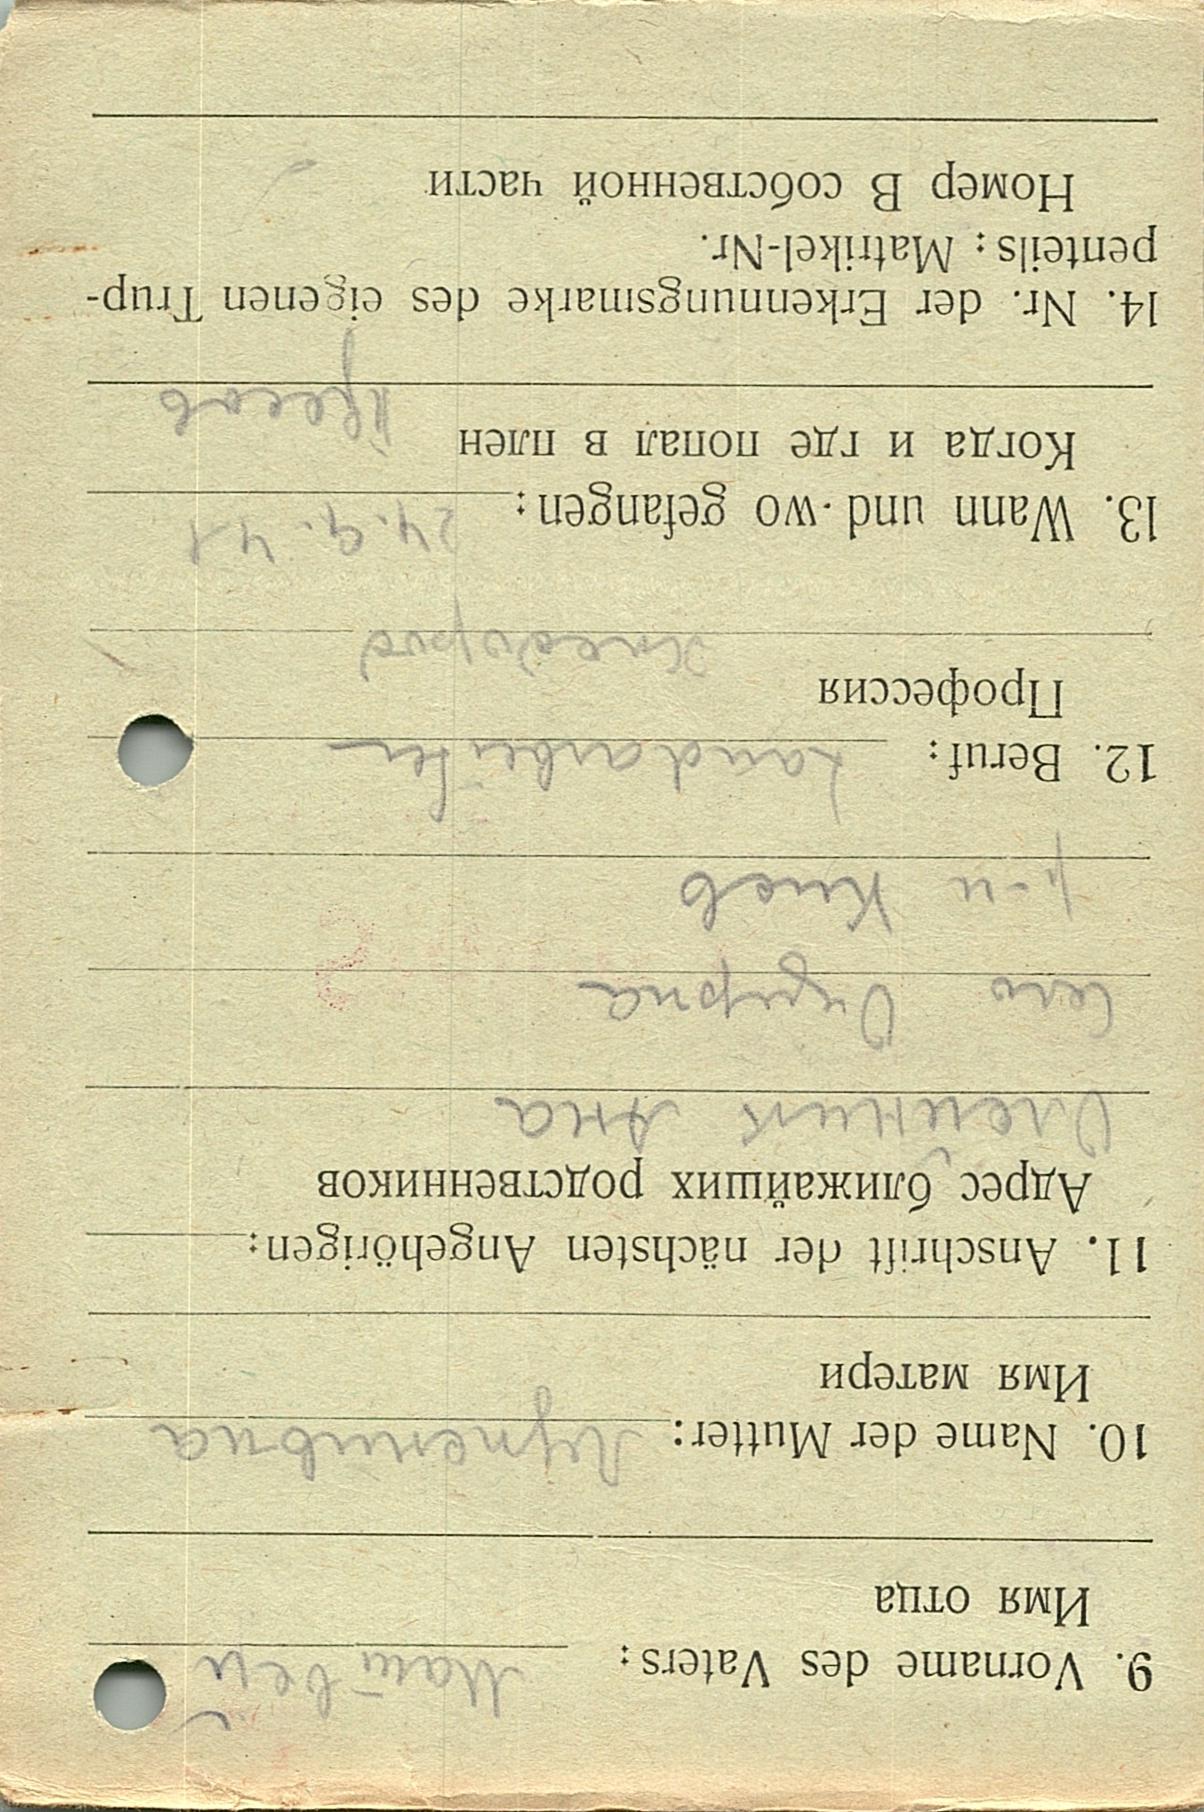 9. Vorname des Vaters: Матвей
Имя отца
10. Name der Mutter:
Имя матери
11. Anschrift der nächsten Angehörigen:
Адрес ближайших родственников
Олейник Ана
село
р-н Киев
12. Beruf: Landarbeiter
Профессия
Хлебороб
13. Wann und wo gefangen: 24.9.41
Когда и где попал в плен
14. Nr. der Erkennungsmarke des eigenen Trup-
penteils; Matrikel-Nr.
Номер В собственной части